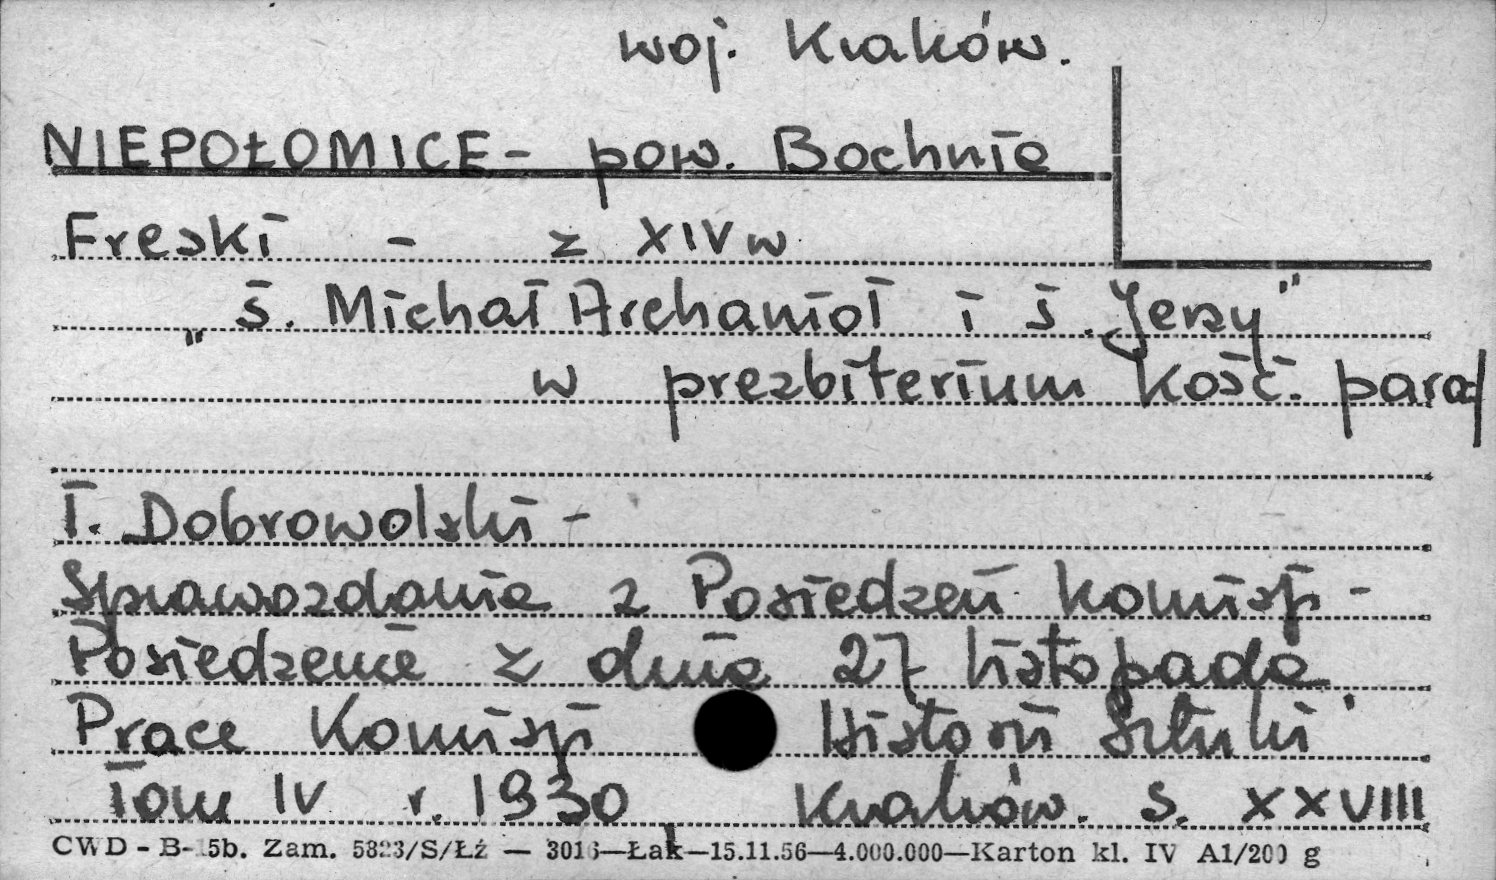 woj. Kraków.
NIEPOŁOMICE - pow. Bochnia
Freski - z XIV w
„ś. Michał Archanioł i ś. Jerzy"
w prezbiterium Kość. paraf
T. Dobrowolski -
Sprawozdania z Posiedzeń Komisji -
Posiedzenie z dnia 27 listopada.
Prace Komisji Historii Sztuki
Tom IV r. 1930 Kraków. s. XXVIII
CWD - B- 5b. Zam. 5823/S/Łż — 3016—Łak—15.11.56—4.000.000—Karton kl. IV A1/200 g